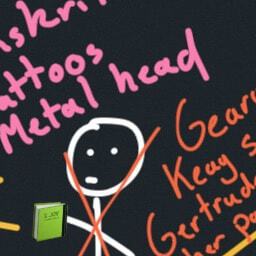 nskri
attoos
Metal head
Gerar
Keay s
Gertrude
her pa